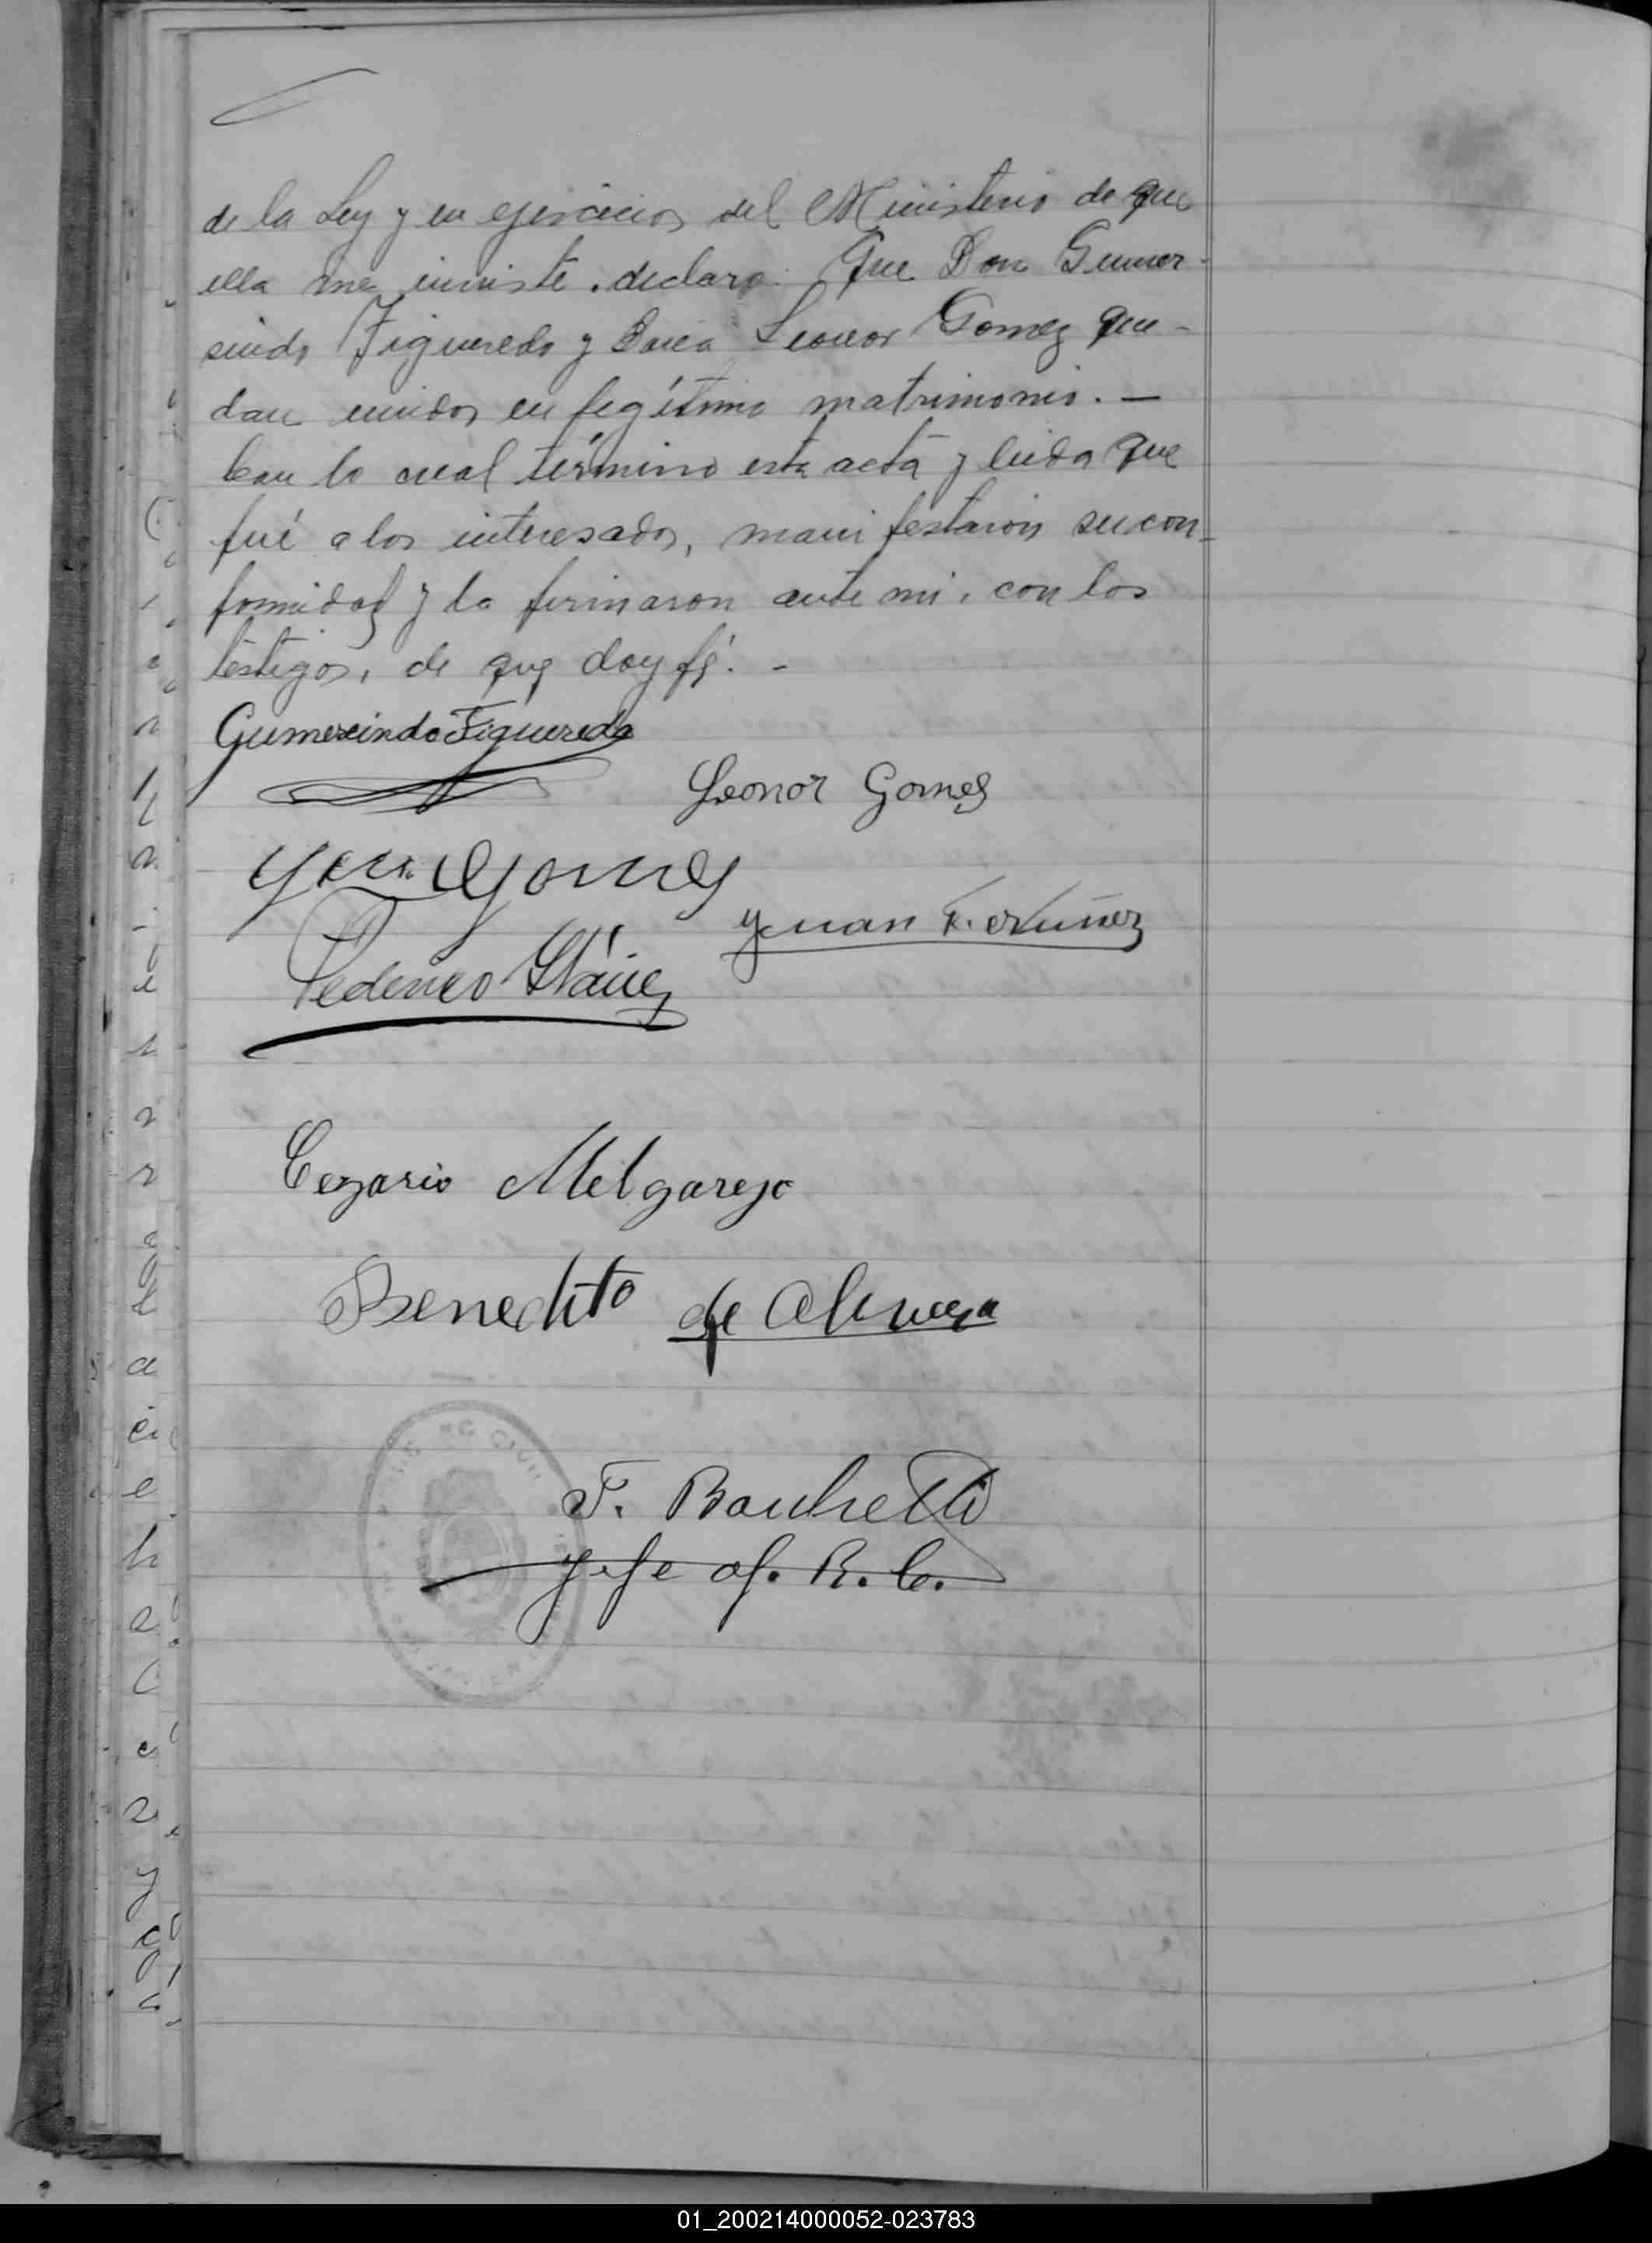 de la Ley y en ejercicios del Ministerio de que
ella me inviste, declaro: Que Don Gumer-
sindo Figueredo y Doña Leonor Gomez que-
dan unidos en legítimo matrimonio. —
Con lo cuál término esta acta y leida que
fué a los interesados, manifestaron su con-
formidad y la firmaron ante mi, con los
testigos, de que doy fé. -
Gumersindo Figueredo
Leonor Gomez
Gomez
Juan F. Nuñez
Federico
Cezario Melgarejo
Benedito de
REG. CIVIL
F. Banchetti
Jefe of. R. C.
01_200214000052-023783